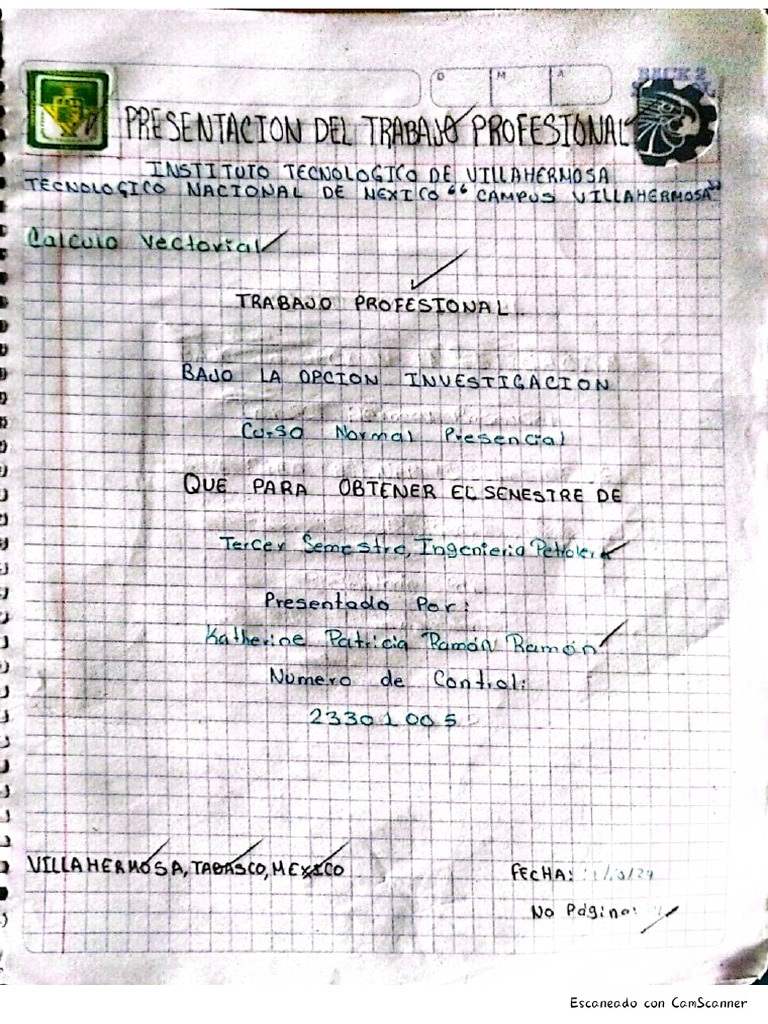 D M A
BACK 2
PRESENTACION DEL TRABAJO PROFESIONAL
INSTITUTO TECNOLOGICO DE VILLAHERMOSA
TECNOLOGICO NACIONAL DE MEXICO “ CAMPUS VILLAHERMOSA”
Calculo Vectorial
TRABAJO PROFESIONAL
BAJO LA OPCION INVESTIGACION
Curso Normal Presencial
QUE PARA OBTENER EL SEMESTRE DE
Tercer Semestre, Ingenieria Petrolera
Presentado Por:
Katherine Patricia Ramón Ramón
Numero de Control:
23301005
VILLAHERMOSA, TABASCO, MEXICO
FECHA:
No Página:
Escaneado con CamScanner